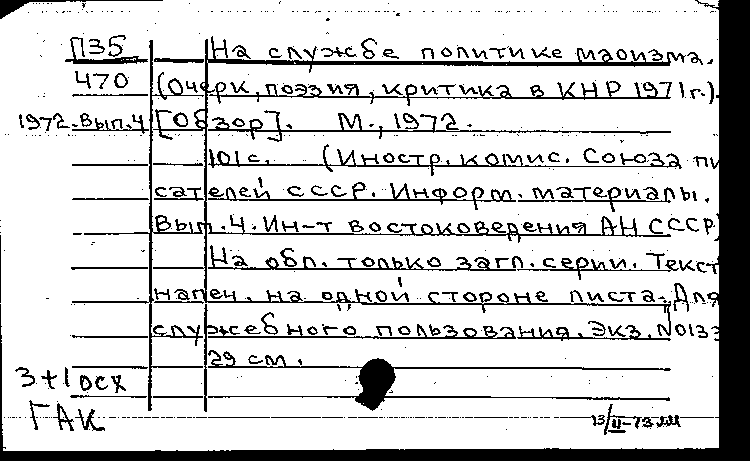 П35 На службе политике маоизма.
470 (Очерк, поэзия, критика в КНР 1971г.).
1972.Вып.4 [Обзор]. М., 1972.
101с. (Иностр. комис. Союза пи
сателей СССР. Информ. материалы.
Вып. 4. Ин-т востоковедения АН СССР)
На обл. только загл. серии. Текст
напеч. на одной стороне листа. Для
служебного пользования. Экз. №0133
29 см.
3+1осх
ГАК
13/II-73